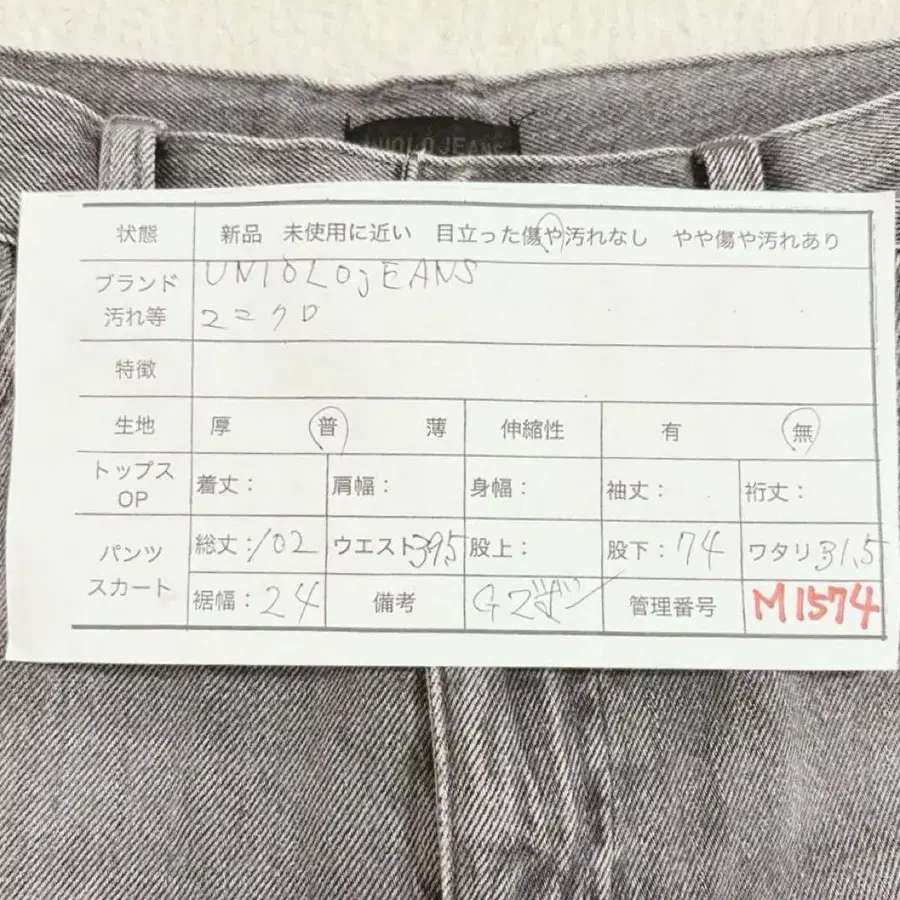 UNIQLO JEANS
状態 新品 未使用に近い 目立った傷や汚れなし やや傷や汚れあり
ブランド UNIQLOjEANS
汚れ等 ユニクロ
特徴
生地 厚 普 薄 伸縮性 有 無
トップス OP 着丈: 肩幅: 身幅: 袖丈: 裄丈:
パンツ スカート 総丈:102 ウエスト39.5 股上: 股下:74 ワタリ31.5
裾幅:24 備考 管理番号 M1574